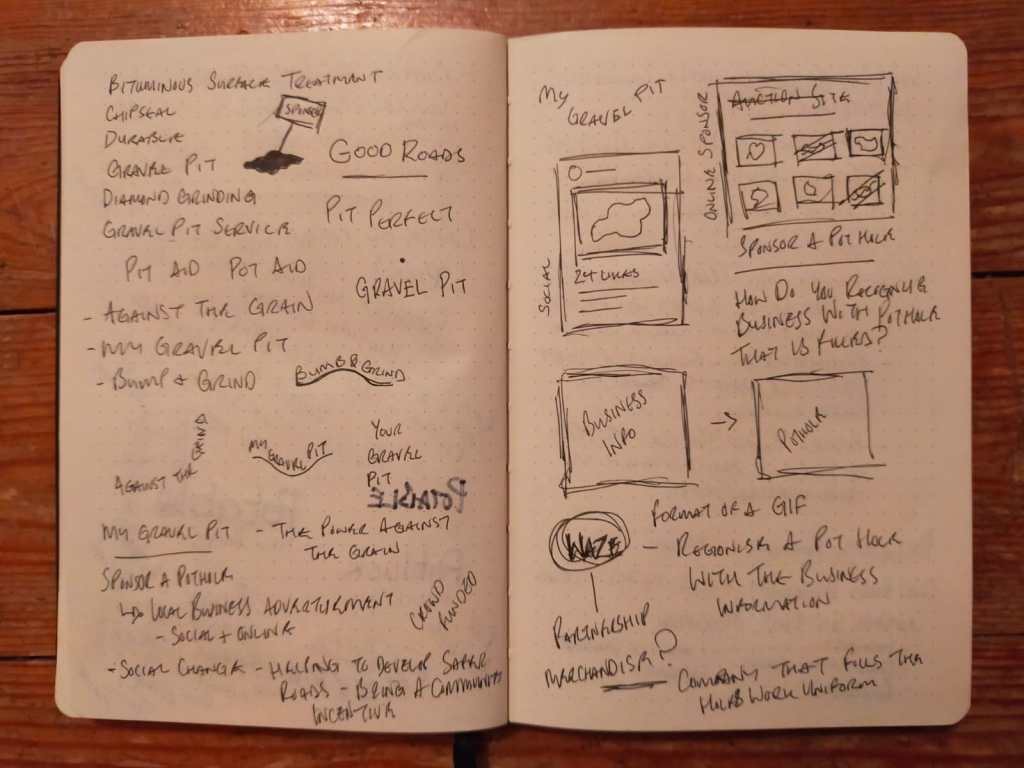 BITUMINOUS SURFACE TREATMENT
CHIPSEAL
DURABLE
GRAVEL PIT
DIAMOND GRINDING
GRAVEL PIT SERVICE
PIT AID POT AID
- AGAINST THE GRAIN
- MY GRAVEL PIT
- BUMP & GRIND
SPONSOR
GOOD ROADS
PIT PERFECT
GRAVEL PIT
BUMP & GRIND
AGAINST THE GRIND
MY GRAVEL PIT
YOUR
GRAVEL
PIT
POTABLE
MY GRAVEL PIT - THE POWER AGAINST
THE GRAIN
SPONSOR A POTHOLE
↳ LOCAL BUSINESS ADVERTURMENT
- SOCIAL + ONLINE
CROWD
FUNDED
- SOCIAL CHANGE - HELPING TO DEVELOP SAFER
ROADS - BRING A COMMUNITY
INCENTIVE
MY GRAVEL PIT
SOCIAL
24 LIKES
ONLINE SPONSOR
AUCTION SITE
SPONSOR A POTHOLE
HOW DO YOU RECOGNISE
BUSINESS WITH POTHOLE
THAT IS FILLED?
BUSINESS
INFO
→
POTHOLE
FORMAT OF A GIF
WAZE
- REGIONISE A POT HOLE
WITH THE BUSINESS
INFORMATION
PARTNERSHIP
MARCHANDISE?
COMPANY THAT FILLS THE
HOLES WORK UNIFORM